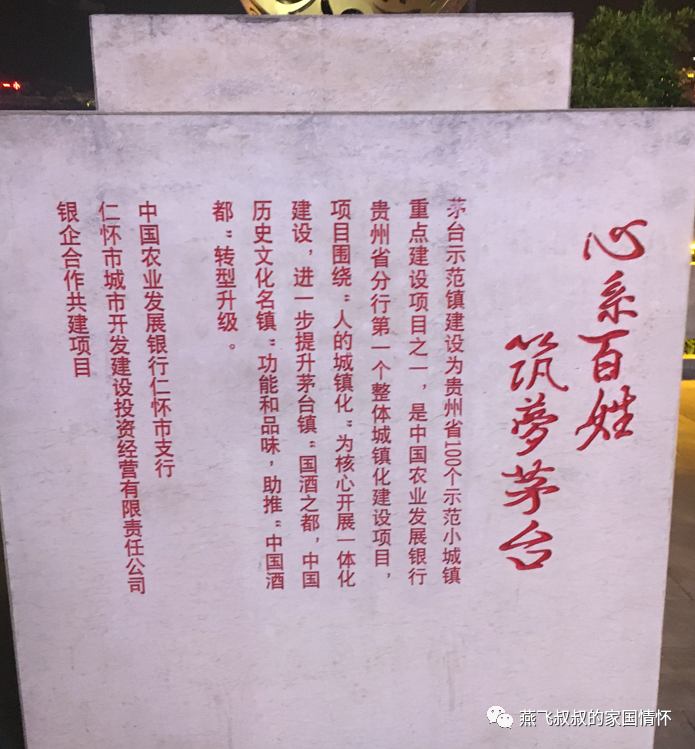 心系百姓
筑夢茅台
茅台示范镇建设为贵州省100个示范小城镇
重点建设项目之一，是中国农业发展银行
贵州省分行第一个整体城镇化建设项目，
项目围绕“人的城镇化”为核心开展一体化
建设，进一步提升茅台镇“国酒之都，中国
历史文化名镇”功能和品味，助推“中国酒
都”转型升级。
中国农业发展银行仁怀市支行
仁怀市城市开发建设投资经营有限责任公司
银企合作共建项目
燕飞叔叔的家国情怀